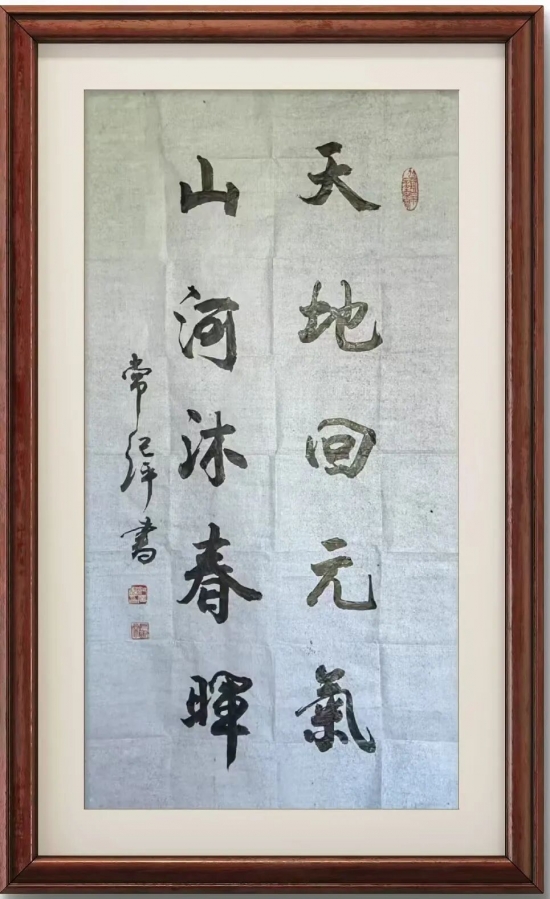 天地回元氣
山河沐春暉
常纪萍書